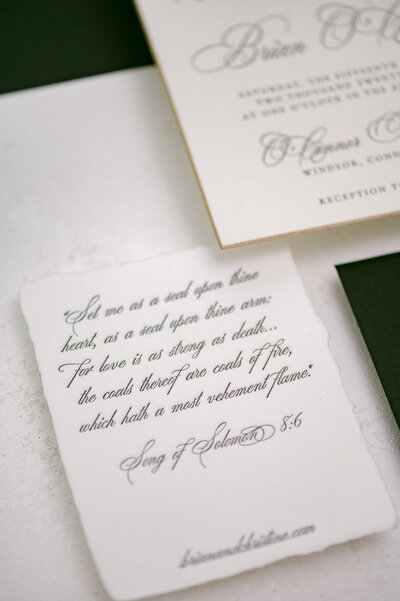 Brian O'
SATURDAY, THE FIFTEENTH
TWO THOUSAND TWENTY
AT ONE O'CLOCK IN THE A
O'Connor
WINDSOR, CONN
RECEPTION TO
"Set me as a seal upon thine
heart, as a seal upon thine arm:
For love is as strong as death...
the coals thereof are coals of fire,
which hath a most vehement flame."
Song of Solomon 8:6
briannandchristine.com